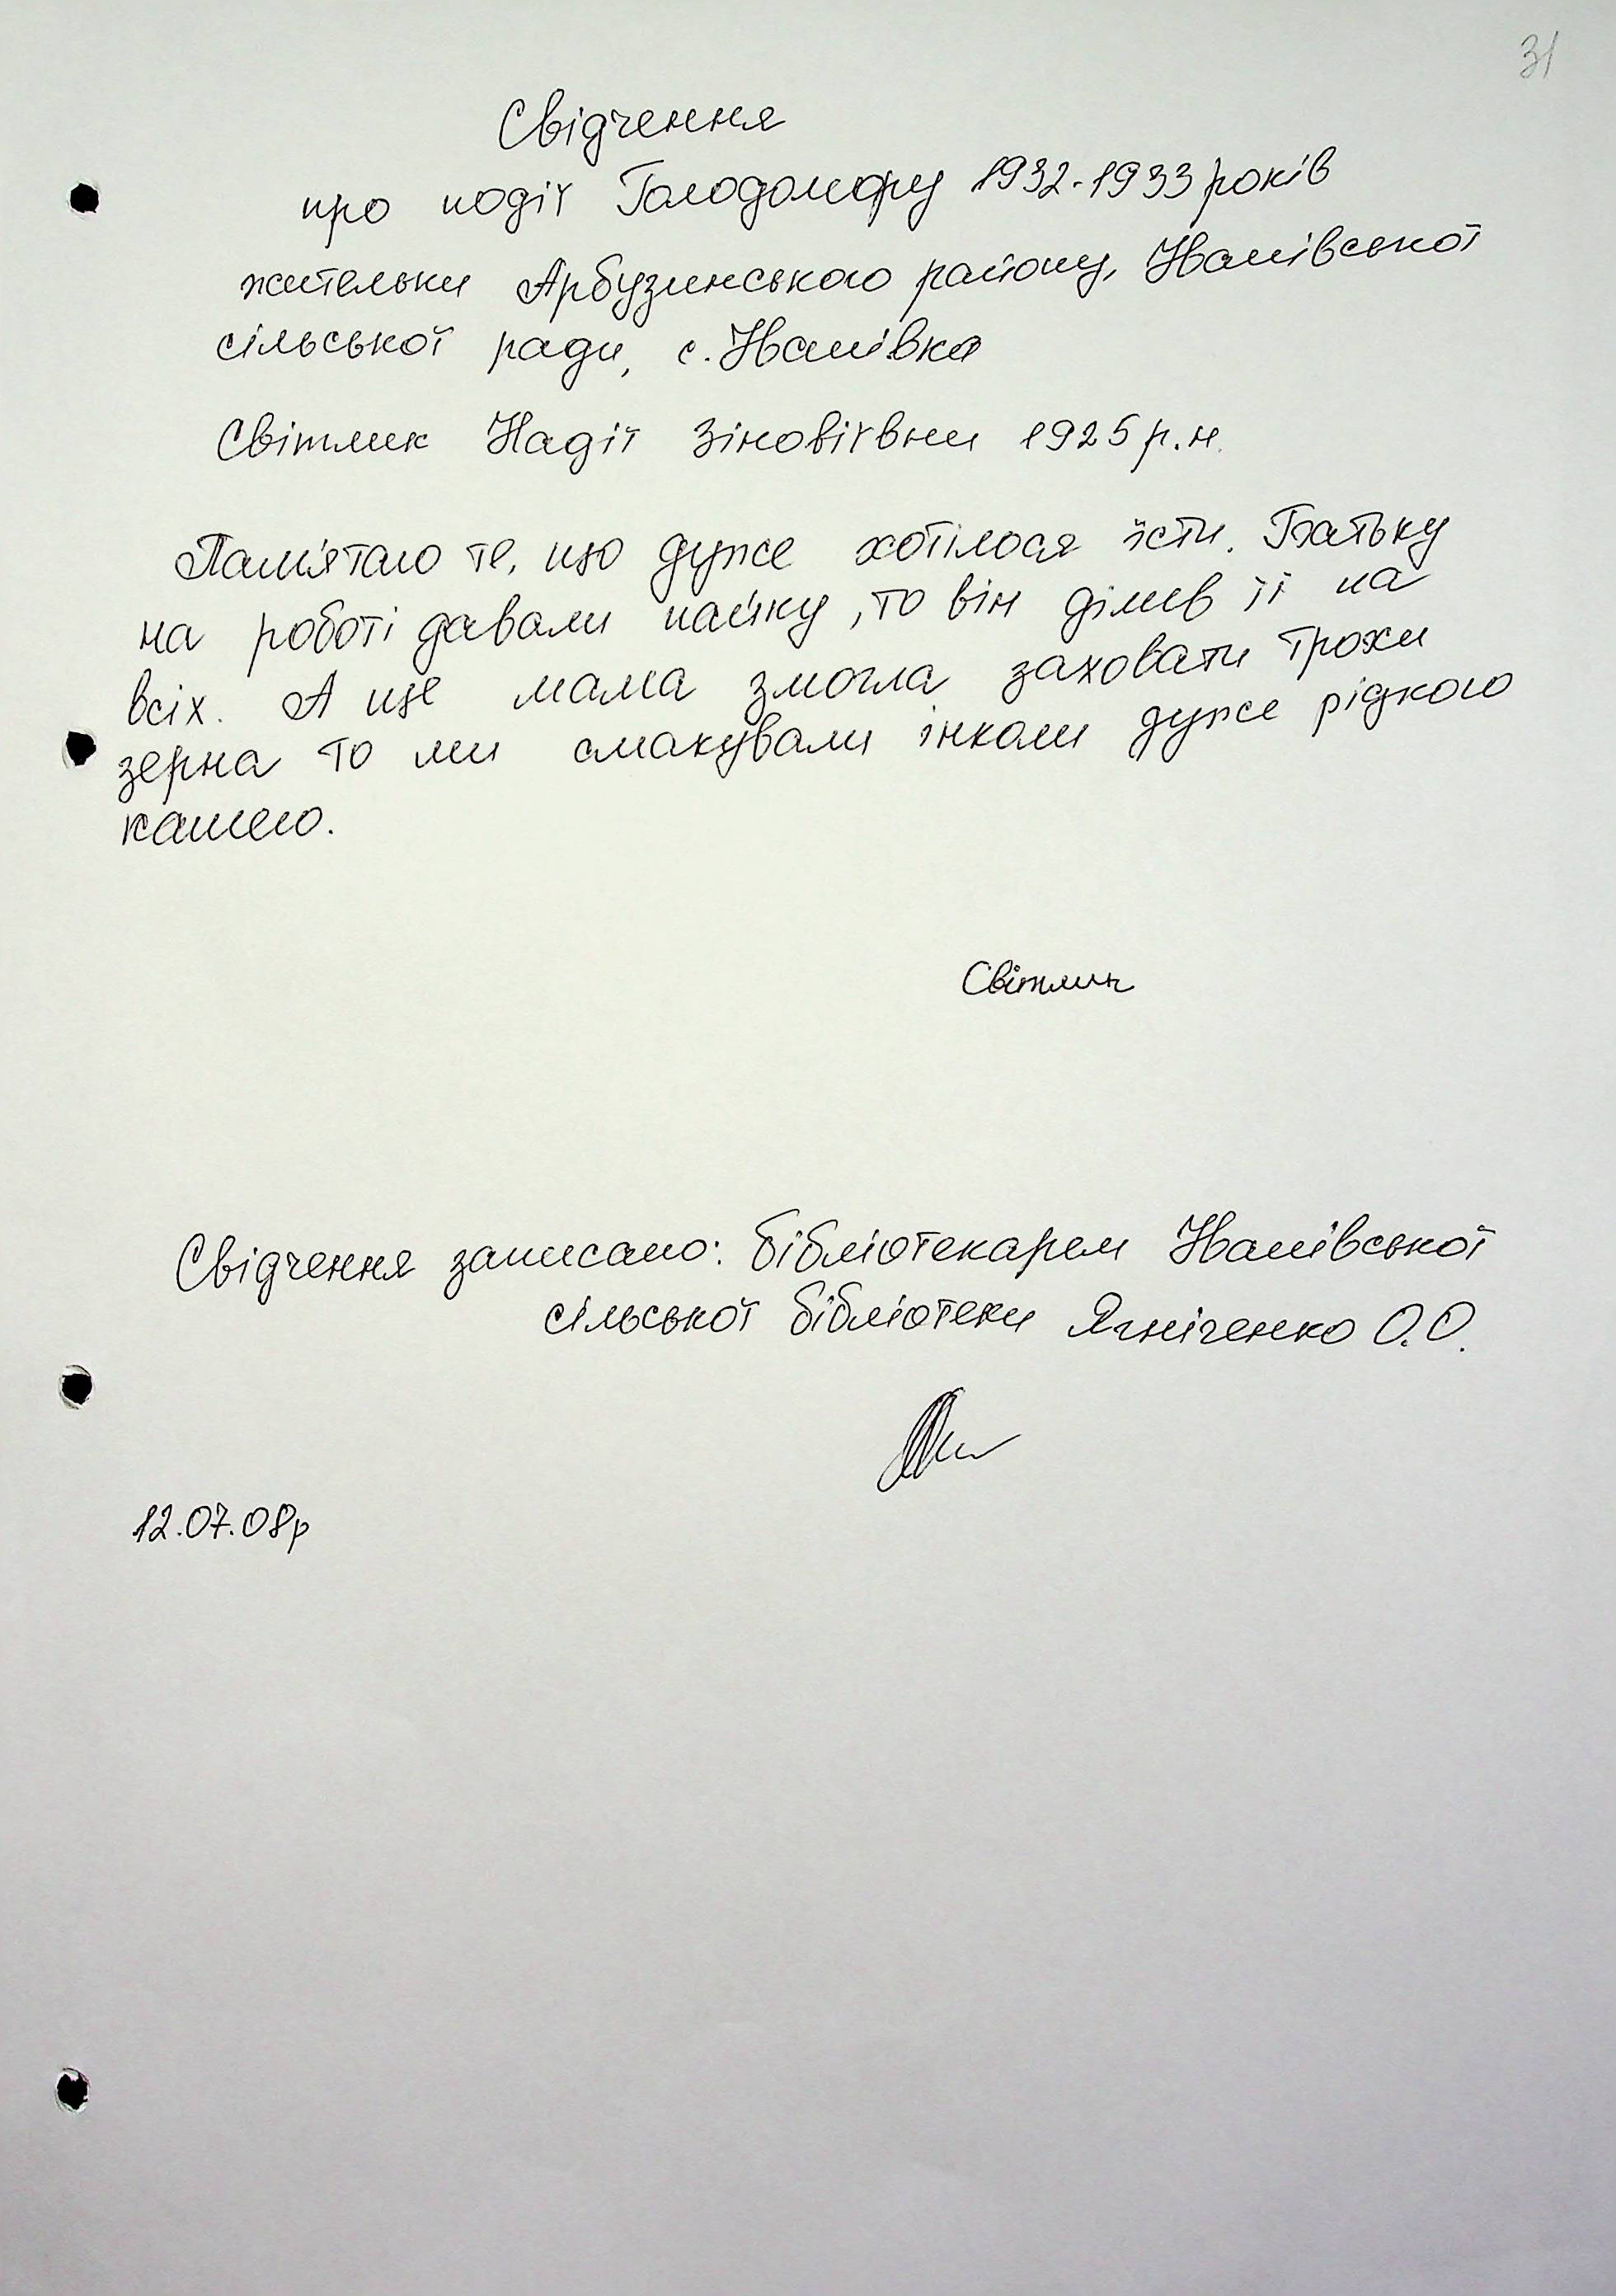 31
Свідчення
про події Голодомору 1932-1933 років
жительки Арбузинського району, Іванівської
сільської ради, с. Іванівка
Світлик Надії Зіновіївни 1925 р.н.
Пам'ятаю те, що дуже хотілося їсти. Батьку
на роботі давали пайку, то він ділив її на
всіх. А ще мама змогла заховати трохи
зерна то ми смакували інколи дуже рідкою
кашею.
Світлик
Свідчення записано: бібліотекарем Іванівської
сільської бібліотеки Ягніченко О.О.
12.07.08р